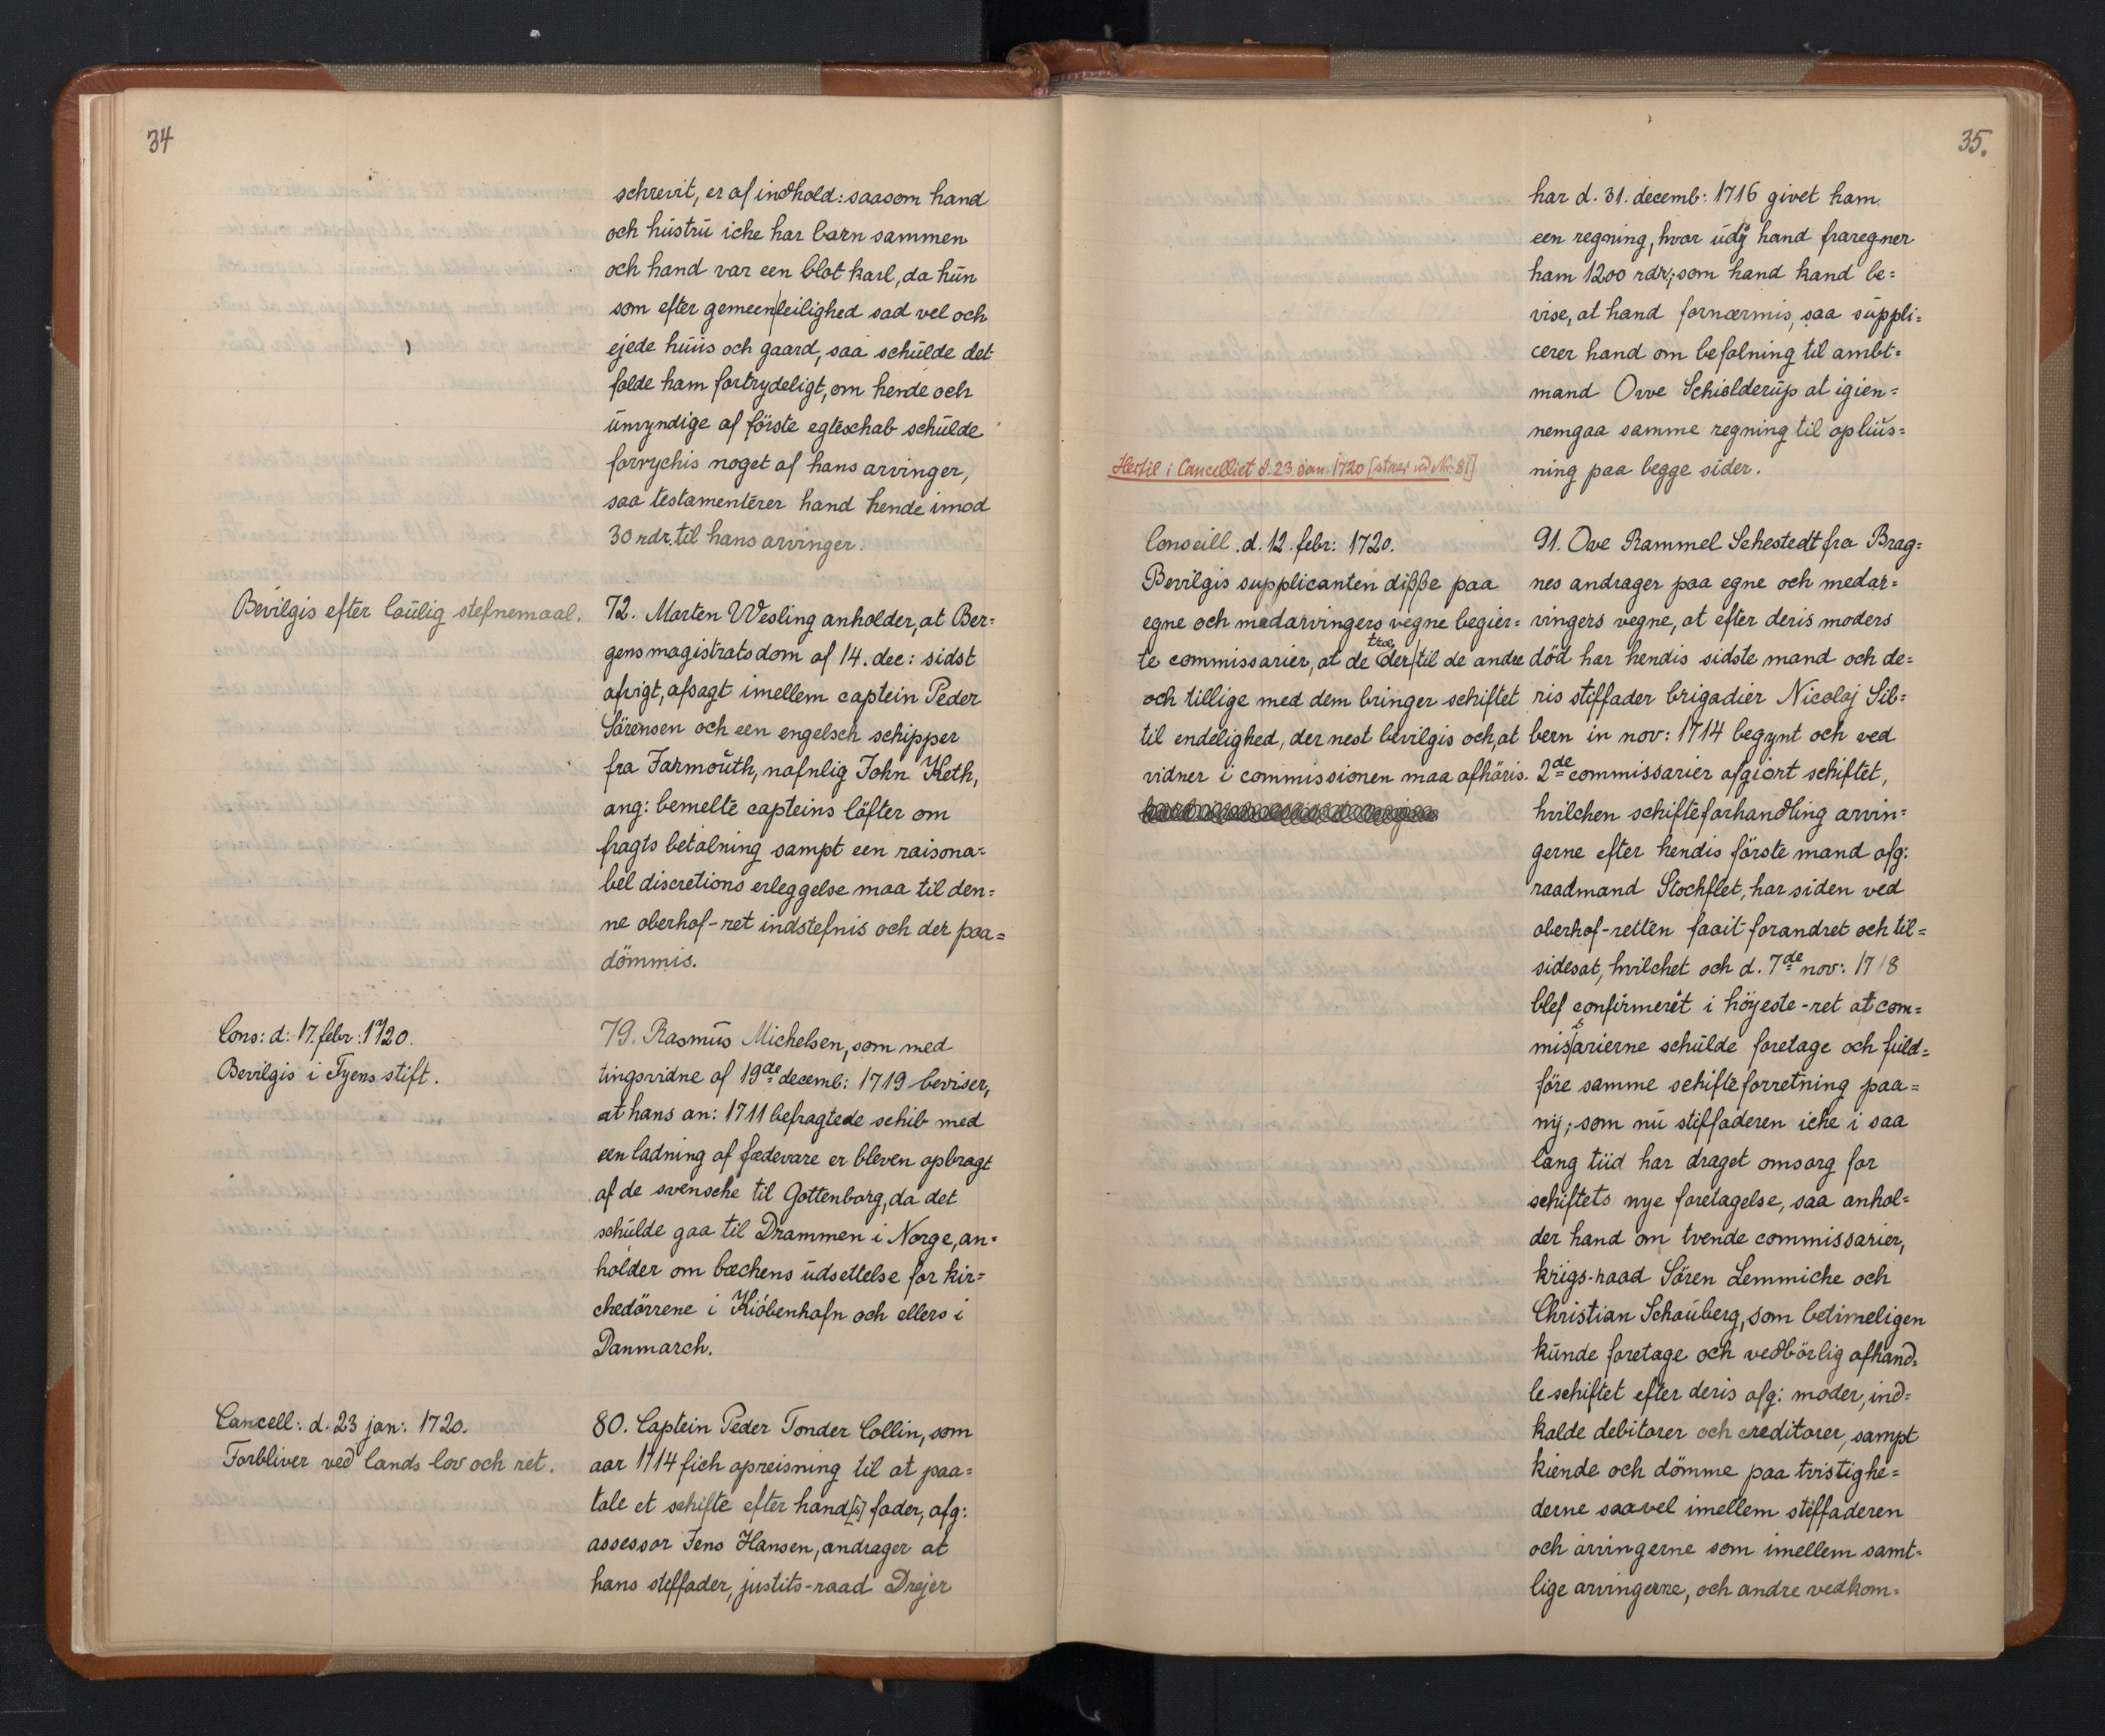 34
schrevit, er af indhold: saasom hand
och hústrú iche har barn sammen
och hand var een blot karl, da hún
som efter gemeen leilighed sad vel och
ejede húús och gaard, saa schúlde det
falde ham fortrydeligt, om hende och
únyndige af förste egteschab schúlde
forrychis noget af hans arvinger,
saa testamenterer hand hende imod
30 rdr. til hans arvinger.
Bevilgis efter laúlig stefnemaal.
72. Marten Wesling anholder, at Ber=
gens magistrats dom af 14. dec: sidst
afvigt, afsagt imellem captein Peder
Sörensen och een engelsch schipper
fra Jarmoúth, nafnlig John Keth,
ang: bemelte capteins löfter om
fragts betalning sampt een raisona=
bel discretions erleggelse maa til den=
ne oberhof-ret indstefnis och der paa=
dömmis.
Cons: d: 17. febr: 1720.
Bevilgis i Fyens stift.
79. Rasmús Michelsen, som med
tingsvidne af 19de decemb: 1719 beviser,
at hans an: 1711 befragtede schib med
een ladning af fædevare er bleven opbragt
af de svensche til Gottenborg, da det
schúlde gaa til Drammen i Norge, an=
holder om bæchens údsettelse for kir=
chedörrene i Kiöbenhafn och ellers i
Danmarch.
Cancell: d. 23 jan: 1720.
Forbliver ved lands lov och ret.
80. Captein Peder Tonder Collin, som
aar 1714 fich opreisning til at paa=
tale et schifte efter hand[s] fader, afg:
assessor Jens Hansen, andrager at
hans steffader, justits-raad Drejer
35.
har d. 31. decemb: 1716 givet ham
een regning, hvor údj hand fraregner
ham 1200 rdr; som hand kand be=
vise, at hand fornærmis, saa súppli=
cerer hand om befalning til ambt=
mand Ovve Schielderúp at igien=
nemgaa samme regning til opliús=
ning paa begge sider.
Hertil i Cancelliet d. 23 jan. 1720 [strax ud No. 81]
Conseill. d. 12. febr: 1720.
Bevilgis supplicanten disse paa
egne och medarvingers vegne begier=
te commissarier, at de træder til de andre
och tillige med dem bringer schiftet
til endelighed, der nest bevilgis och, at
vidner i commissionen maa afhöris.
91. Ove Rammel Sehestedt fra Brag=
nes andrager paa egne och medar=
vingers vegne, at efter deris moders
död har hendis sidste mand och de=
ris stiffader brigadier Nicolaj Sib=
bern in nov: 1714 begynt och ved
2de commissarier afgiort schiftet,
hvilchen schifteforhandling arvin=
gerne efter hendis förste mand afg:
raadmand Stochflet, har siden ved
oberhof-retten faait forandret och til=
sidesat, hvilchet och d. 7de nov: 1718
blef confirmeret i höyeste-ret at com=
missarierne schúlde foretage och fúld=
före samme schifteforretning paa=
nÿ; som nú stiffaderen iche i saa
lang tiid har draget omsorg for
schiftets nye foretagelse, saa anhol=
der hand om tvende commissarier,
krigs-raad Sören Lemmiche och
Christian Schaúberg, som betimeligen
kúnde foretage och vedbörlig afhand=
le schiftet efter deris afg: moder, ind=
kalde debitorer och creditorer, sampt
kiende och dömme paa tvistighe=
derne saavel imellem stiffaderen
och arvingerne som imellem samt=
lige arvingerne, och andre vedkom=